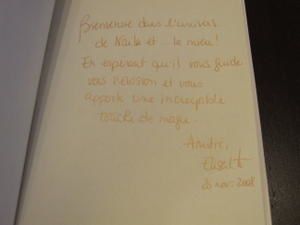 Bienvenue dans l'univers
de Naïla et ... le mien !
En espérant qu'il vous guide
vers l'évasion et vous
apporte une incroyable
touche de magie.
Amitié,
20 nov. 2008